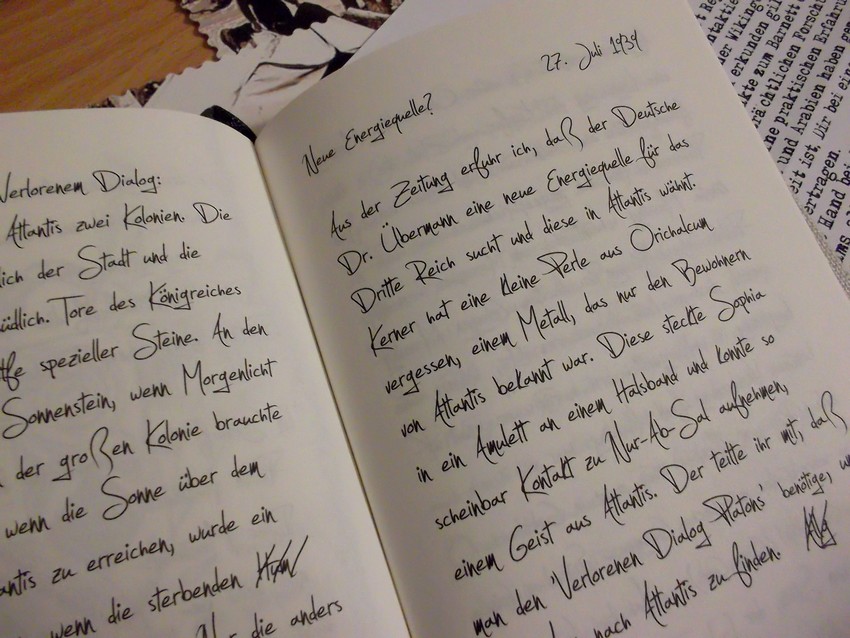 Verlorenem Dialog:
Atlantis zwei Kolonien. Die
lich der Stadt und die
üdlich. Tore des Königreiches
spezieller Steine. An den
Sonnenstein, wenn Morgenlicht
der großen Kolonie brauchte
wenn die Sonne über dem
antis zu erreichen, wurde ein
wenn die sterbenden
die anders
27. Juli 1939
Neue Energiequelle?
Aus der Zeitung erfuhr ich, daß der Deutsche
Dr. Übermann eine neue Energiequelle für das
Dritte Reich sucht und diese in Atlantis wähnt.
Kerner hat eine kleine Perle aus Orichalcum
vergessen, einem Metall, das nur den Bewohnern
von Atlantis bekannt war. Diese steckte Sophia
in ein Amulett an einem Halsband und konnte so
scheinbar Kontakt zu Nur-Ab-Sal aufnehmen,
einem Geist aus Atlantis. Der teilte ihr mit, daß
man den 'Verlorenen Dialog Platons' benötige, u
nach Atlantis zu finden.
ntaktie
der Wiking
erkunden gil
kte zum Barnett
rächtlichen Forsch
ne praktischen Erfahru
und Arabien haben ge
eit ist. Wir bei ein
ertragen.
Hand bei